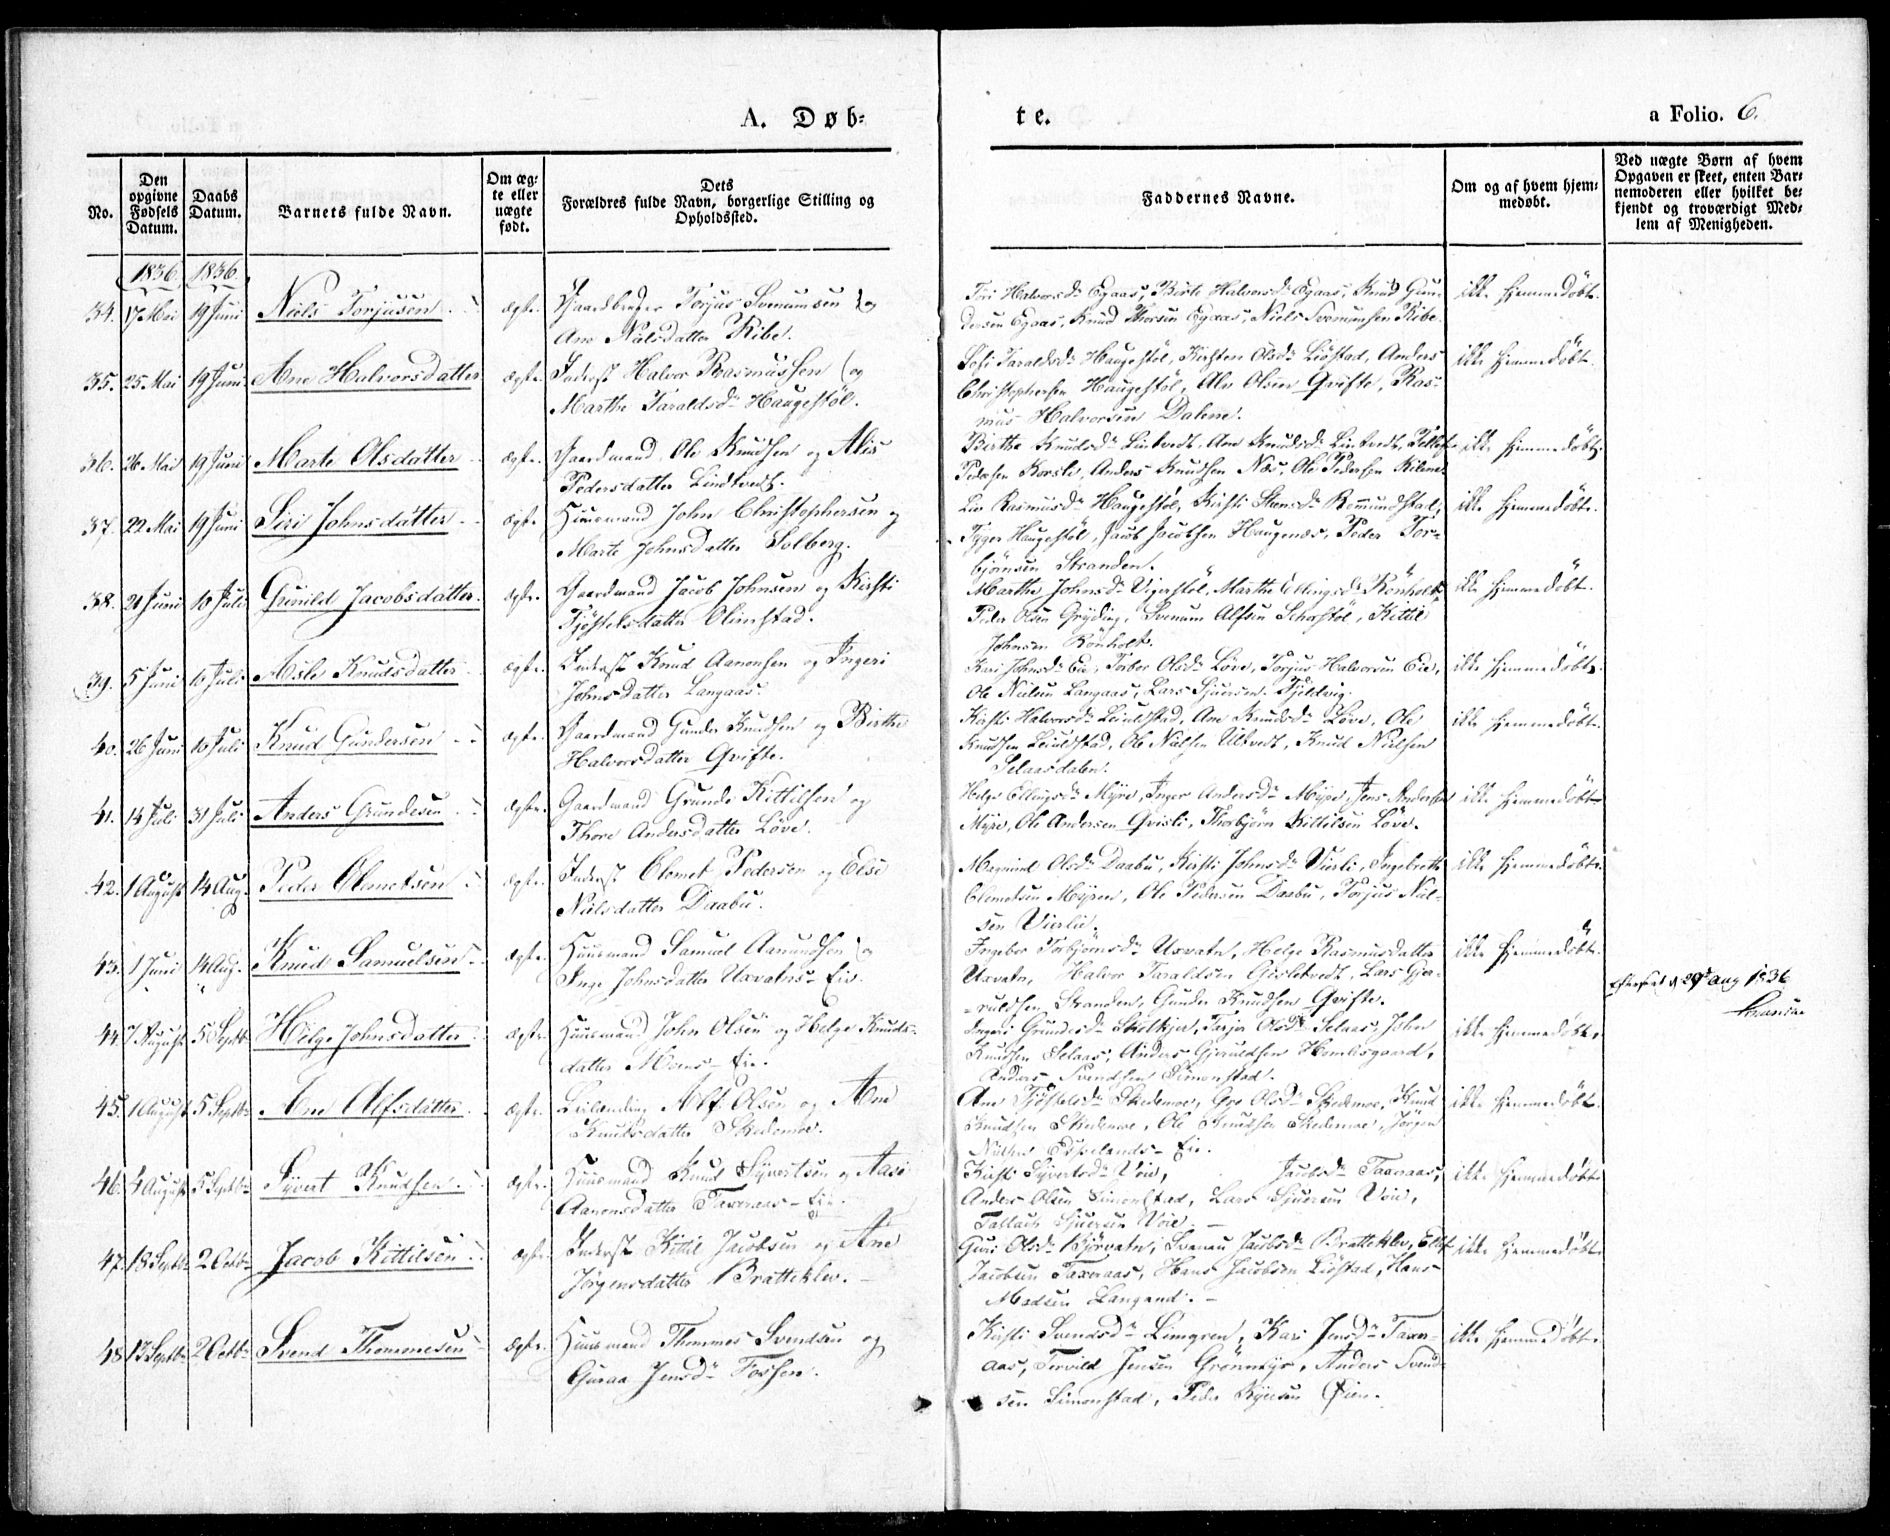 A. Døb=
te.
a Folio. 6.
No.
Den
opgivne
Fødsels
Datum.
Daabs
Datum.
Barnets fulde Navn.
Om æg=
te eller
uægte
født.
Dets
Forældres fulde Navn, borgerlige Stilling og
Opholdssted.
Faddernes Navne.
Om og af hvem hjem=
medøbt.
Ved uægte Børn af hvem
Opgaven er skeet, enten Bar=
nemoderen eller hvilket be=
kjendt og troværdigt Med=
lem af Menigheden.
1836. 1836.
34. 17 Mai 19 Juni Niels Torjusen ægte. Gaardbruger Torjus Svenumsen og
Ane Nielsdatter Ribe.
Halvorsd. Egaas, Birte Halvorsd. Egaas, Knud Gun=
dersen Egaas, Knud Thorsen Egaas, Niels Svenumsen Ribe.
ikke hjemmedøbt.
35. 25 Mai 19 Juni Ane Halvorsdatter ægte. Inderst Halvor Rasmussen og
Marthe Taraldsd. Haugestøl.
Taraldsd. Haugestøl, Kirsten Olsd. Liøstad, Anders
Christophersen Haugestøl, Alv Olsen Qvifte, Ras=
mus Halvorsen Dalene.
ikke hjemmedøbt.
36. 26 Mai 19 Juni Marte Olsdatter ægte. Gaardmand Ole Knudsen og Alis
Pedersdatter Lindtvedt.
Birthe Knudsd. Lintvedt, Ane Knudsd. Lintvedt,
Pedersen, Anders Knudsen Næs, Ole Pedersen
ikke hjemmedøbt.
37. 22 Mai 19 Juni Siri Johnsdatter ægte. Huusmand John Christophersen og
Marte Johnsdatter Solberg.
Liv Rasmusd. Haugestøl, Kirsti Romundstad,
Tyger Haugestøl, Jacob Jacobsen Haugenes, Peder Tor=
bjørnsen Stranden.
ikke hjemmedøbt.
38. 21 Juni 10 Juli Gunild Jacobsdatter. ægte. Gaardmand Jacob Johnsen og Kirsti
Tjøstelsdatter Olimstad.
Marthe Johnsd. Vigerstøl, Marthe Ellingsd. Rønholt
Peder Olsen Gryting, Svenum Alfsen, Kittil
Johnsen Rønholt.
ikke hjemmedøbt.
39. 5 Juni 10 Juli Asle Knudsdatter ægte. Inderst Knud Aanonsen og Ingeri
Johnsdatter Langaas.
Kari Johnsd. Eie, Olsd. Løve, Torjus Halvorsen Eie,
Ole Nielsen Langaas, Lars Sjursen
ikke hjemmedøbt.
40. 26 Juni 10 Juli Knud Gundersen ægte. Gaardmand Gunder Knudsen og Birthe
Halvorsdatter Qvifte.
Kirsti Halvorsd. Leiulstad, Ane Knudsd. Løve, Ole
Knudsen Leiulstad, Ole Nielsen Ultvedt, Knud Nielsen
Selaasdalen.
ikke hjemmedøbt.
41. 14 Juli 31 Juli Anders Grundesen ægte. Gaardmand Grunde Kittilsen og
Thore Andersdatter Løve.
Helge Ellingsd. Myre, Inger Andersd. Myre, Jens Andersen
Myre, Ole Andersen Qvisli, Thorbjørn Kittilsen Løve.
ikke hjemmedøbt
42. 1 August 14 Aug. Peder Clemetsen ægte. Inderst Clemet Pedersen og Else
Nielsdatter Daabu.
Olsd. Daabu, Kirsti Johnsd. Vierli, Ingebreth
Clemetsen Myren, Ole Pedersen Daabu, Torjus Niel=
sen Vierli.
ikke hjemmedøbt.
43. 1 Juni 14 Aug. Knud Samuelsen ægte. Huusmand Samuel Aamundsen og
Inge Johnsdatter Uxvatns-Eie.
Ingebor Torbjørnsd. Uxvatn, Helge Rasmusdatter
Uxvatn, Halvor Taraldsen Gislestvedt, Lars Gjer=
uldsen Stranden, Gunder Knudsen Qvifte.
ikke hjemmedøbt.
29d Aug 1836
44. 7 August 5 Septb. Helge Johnsdatter ægte. Huusmand John Olsen og Helge Knuds=
datter Moens-Eie.
Ingeri Grundesd., Olsd. Selaas, John
Knudsen Selaas, Anders Gjeruldsen Homlisgaard,
Anders Svendsen Simonstad.
ikke hjemmedøbt.
45. 1 August 5 Septb. Ane Alfsdatter ægte. Leilænding Alf Olsen og Ane
Knudsdatter Skedemoe.
Ane Tjøstelsd. Skedemoe, Gro Olsd. Skedemoe, Knud
Knudsen Skedemoe, Ole Knudsen Skedemoe, Jørgen
Nielsen Espelands-Eie.
ikke hjemmedøbt.
46. 4 August 5 Septb. Syvert Knudsen ægte. Huusmand Knud Syvertsen og Aase
Aanonsdatter Taxeraas-Eie.
Kirsti Syvertsd. Voie, Jacobsd. Taxeraas,
Anders Olsen Simonstad, Lars Sjursen Voie,
Tallack Sjursen Voie.
ikke hjemmedøbt
47. 18 Septb. 2 Octb. Jacob Kittilsen ægte. Inderst Kittil Jacobsen og Ane
Jørgensdatter Bratteklev.
Guri Olsd. Kjørvatn, Jacobsd. Bratteklev, Ellef
Jacobsen Taxeraas, Hans Jacobsen Liøstad, Hans
Madsen Langand.
ikke hjemmedøbt
48. 13 Septb. 2 Octb. Svend Thommesen ægte. Huusmand Thommes Svendsen og
Guroa Jensd. Fossen.
Kirsti Svendsd. Limgren, Kari Jensd. Taxer=
aas, Tarvild Jensen Grønmyr, Anders Svend=
sen Simonstad, Peder Øien.
ikke hjemmedøbt.